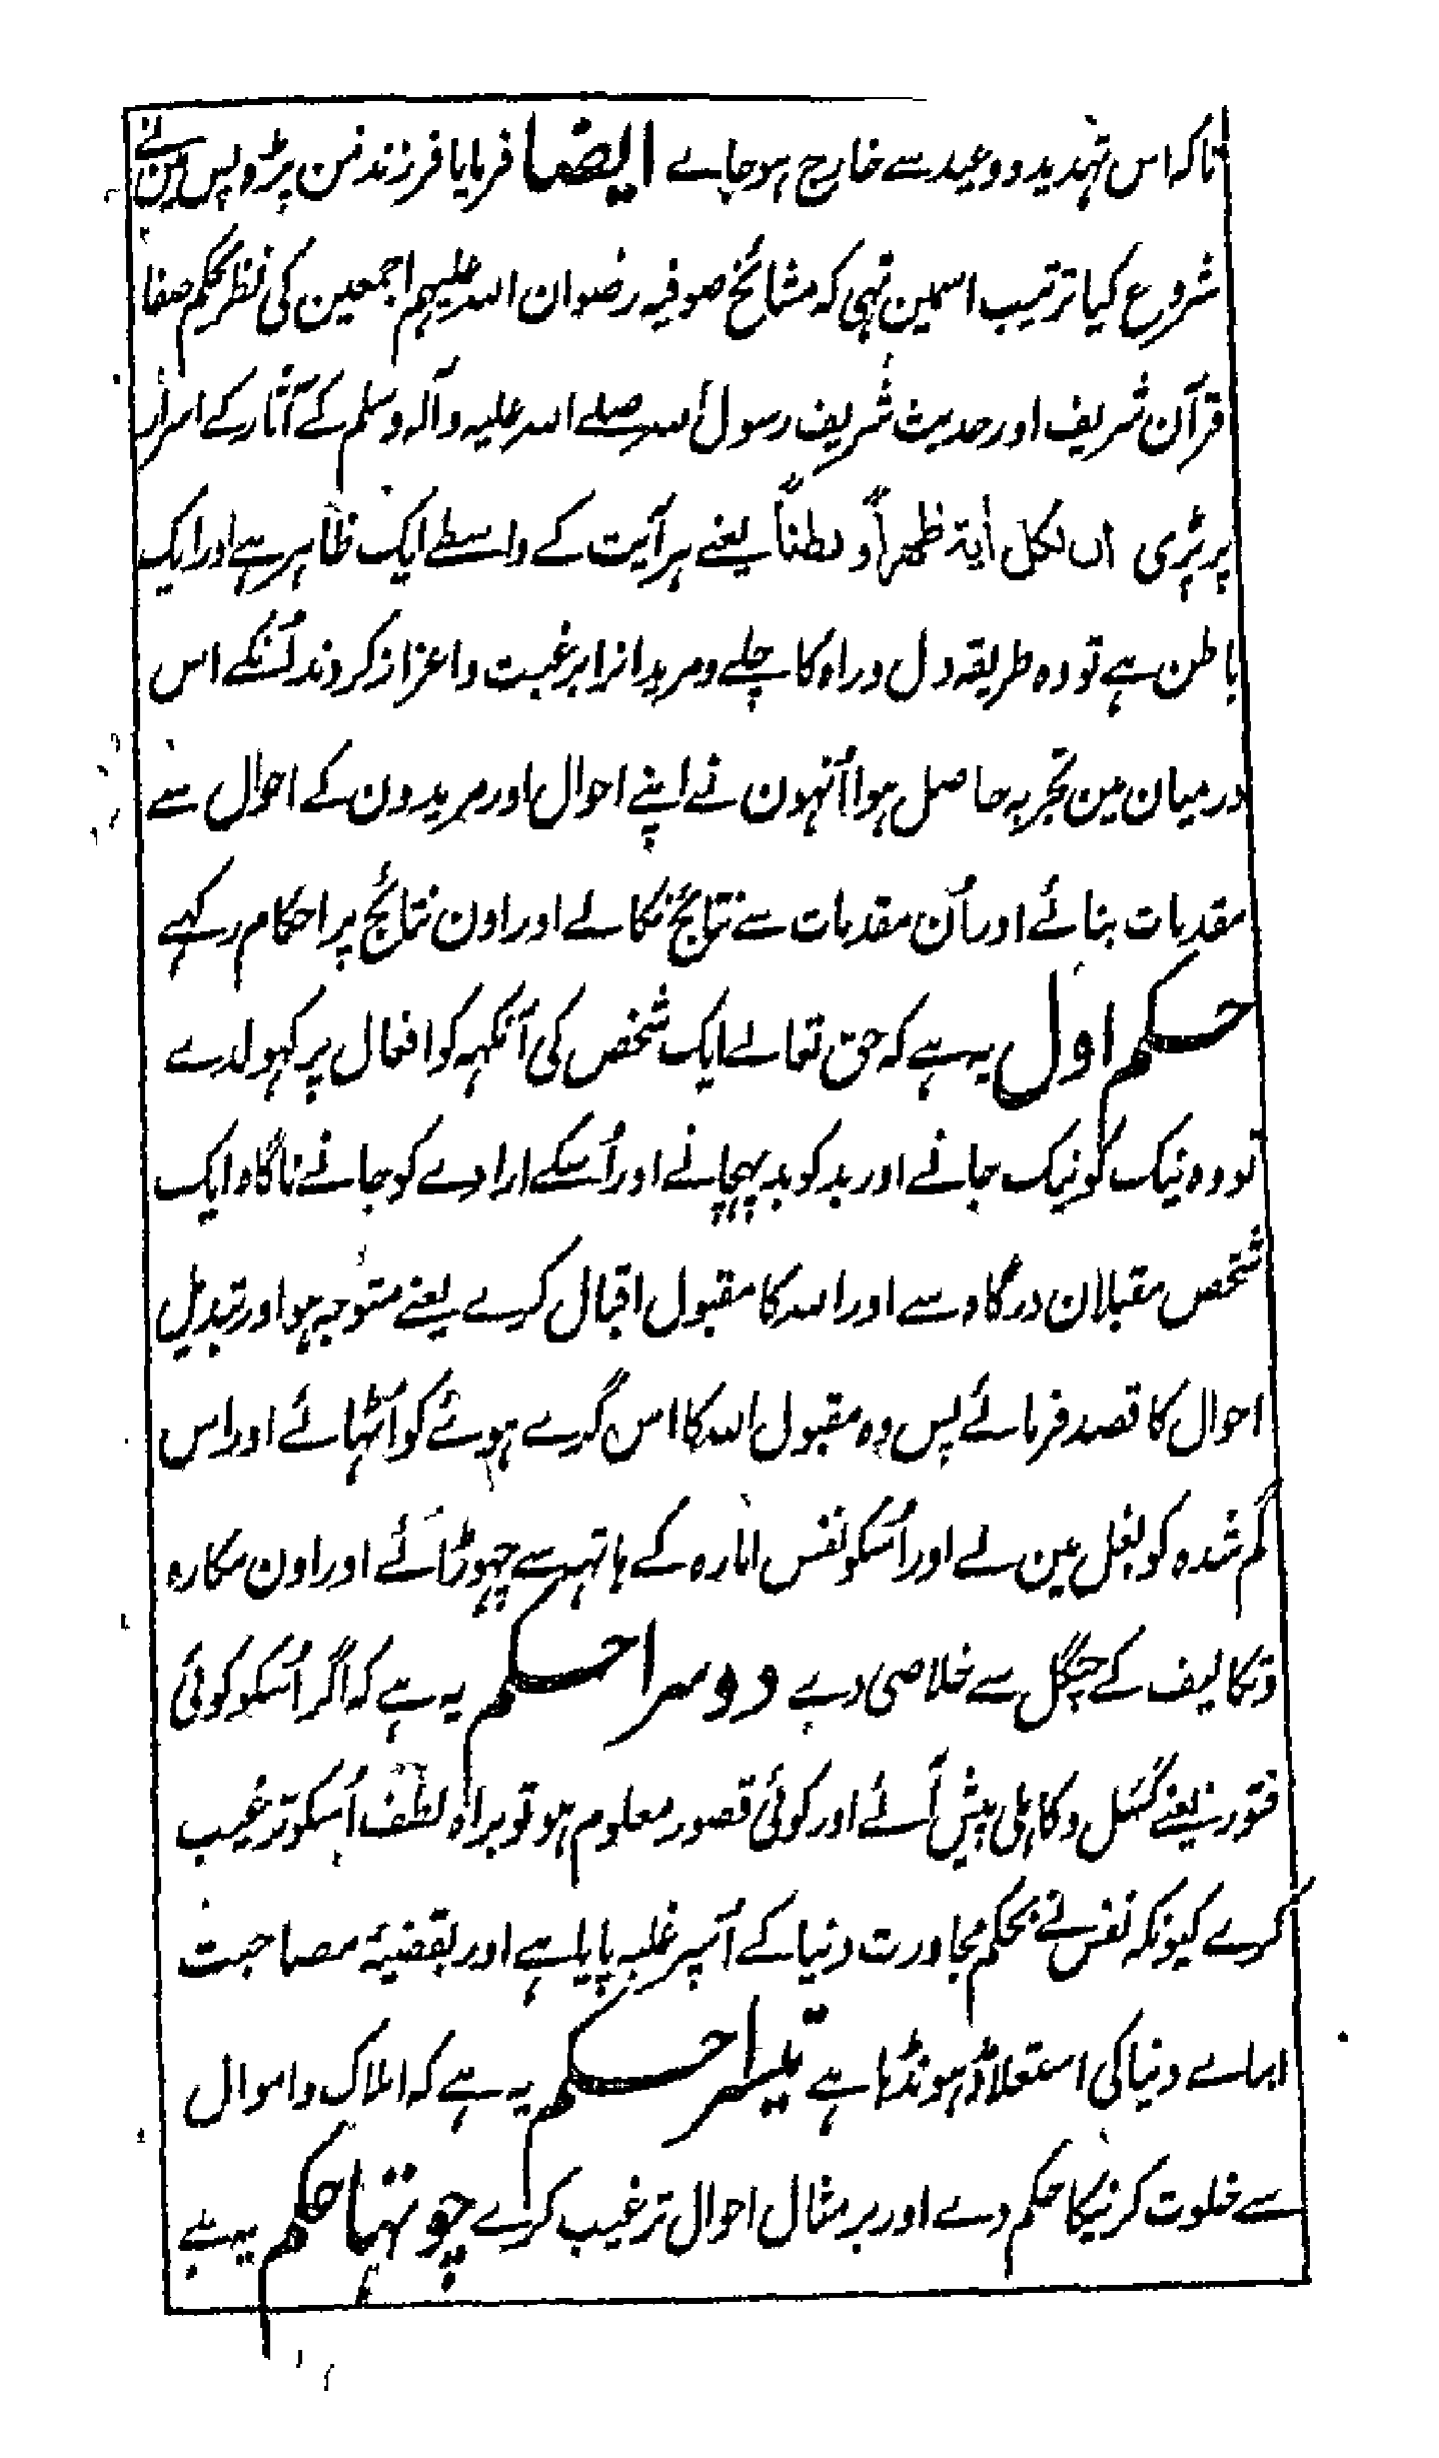 تاکہ اس تہدید و وعید سے خارج ہو جاے ایضا فرمایا فرزند من پڑو پس مین نے
شروع کیا ترتیب اسمین تہی کہ مشائخ صوفیہ رضوان اللہ علیہم اجمعین کی نظر بحکم صفا
قرآن شریف اور حدیث شریف رسول اللہ صلے اللہ علیہ وآلہ وسلم کے آثار کے اسرار
پر پڑی ان لکل اٰیۃ ظھراً و بطناً یعنے ہر آیت کے واسطے ایک ظاہر ہے اور ایک
باطن ہے تو وہ طریقہ دل و راہ کا چلے و مریدانرا برغبت و اعزاز کردند اُنکے اس
درمیان مین تجربہ حاصل ہوا اُنہون نے اپنے احوال اور مریدون کے احوال سے
مقدمات بنائے اور اُن مقدمات سے نتائج نکالے اور اون نتائج پر احکام رکہے
حکم اول یہ ہے کہ حق تعالے ایک شخص کی آنکہہ کو افعال پر کہولدے
تو وہ نیک کو نیک جانے اور بد کو بد پہچانے اور اُسکے ارادے کو جانے ناگاہ ایک
شخص مقبلان درگاہ سے اور اللہ کا مقبول اقبال کرے یعنے متوجہ ہو اور تبدیل
احوال کا قصد فرمائے پس وہ مقبول اللہ کا اس گرے ہوئے کو اُٹہائے اور اس
گم شدہ کو بغل مین لے اور اُسکو نفس امارہ کے ہاتہہ سے چہوڑائے اور اون مکارہ
وتکالیف کے چنگل سے خلاصی دے دوسرا حکم یہ ہے کہ اگر اُسکو کوئی
فتور یعنے کسل و کاہلی پیش آئے اور کوئی قصور معلوم ہو تو براہ لطف اُسکو ترغیب
کرے کیونکہ نفس نے بحکم مجاورت دنیا کے اُسپر غلبہ پایا ہے اور بقضیۂ مصاحبت
ابناے دنیا کی استعلا ڈہونڈہا ہے تیسرا حکم یہ ہے کہ املاک و اموال
سے خلوت کرنیکا حکم دے اور بر مثال احوال ترغیب کرے چوتہا حکم یہ ہے